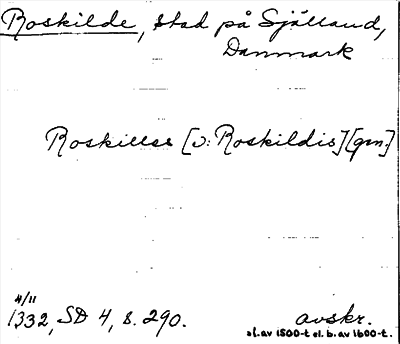 Roskilde, stad på Själland,
Danmark
Roskillse [v: Roskildis] [gen]
4/11
1332, SD 4, s. 290.
avskr.
sl. av 1500-t el. b. av 1600-t.